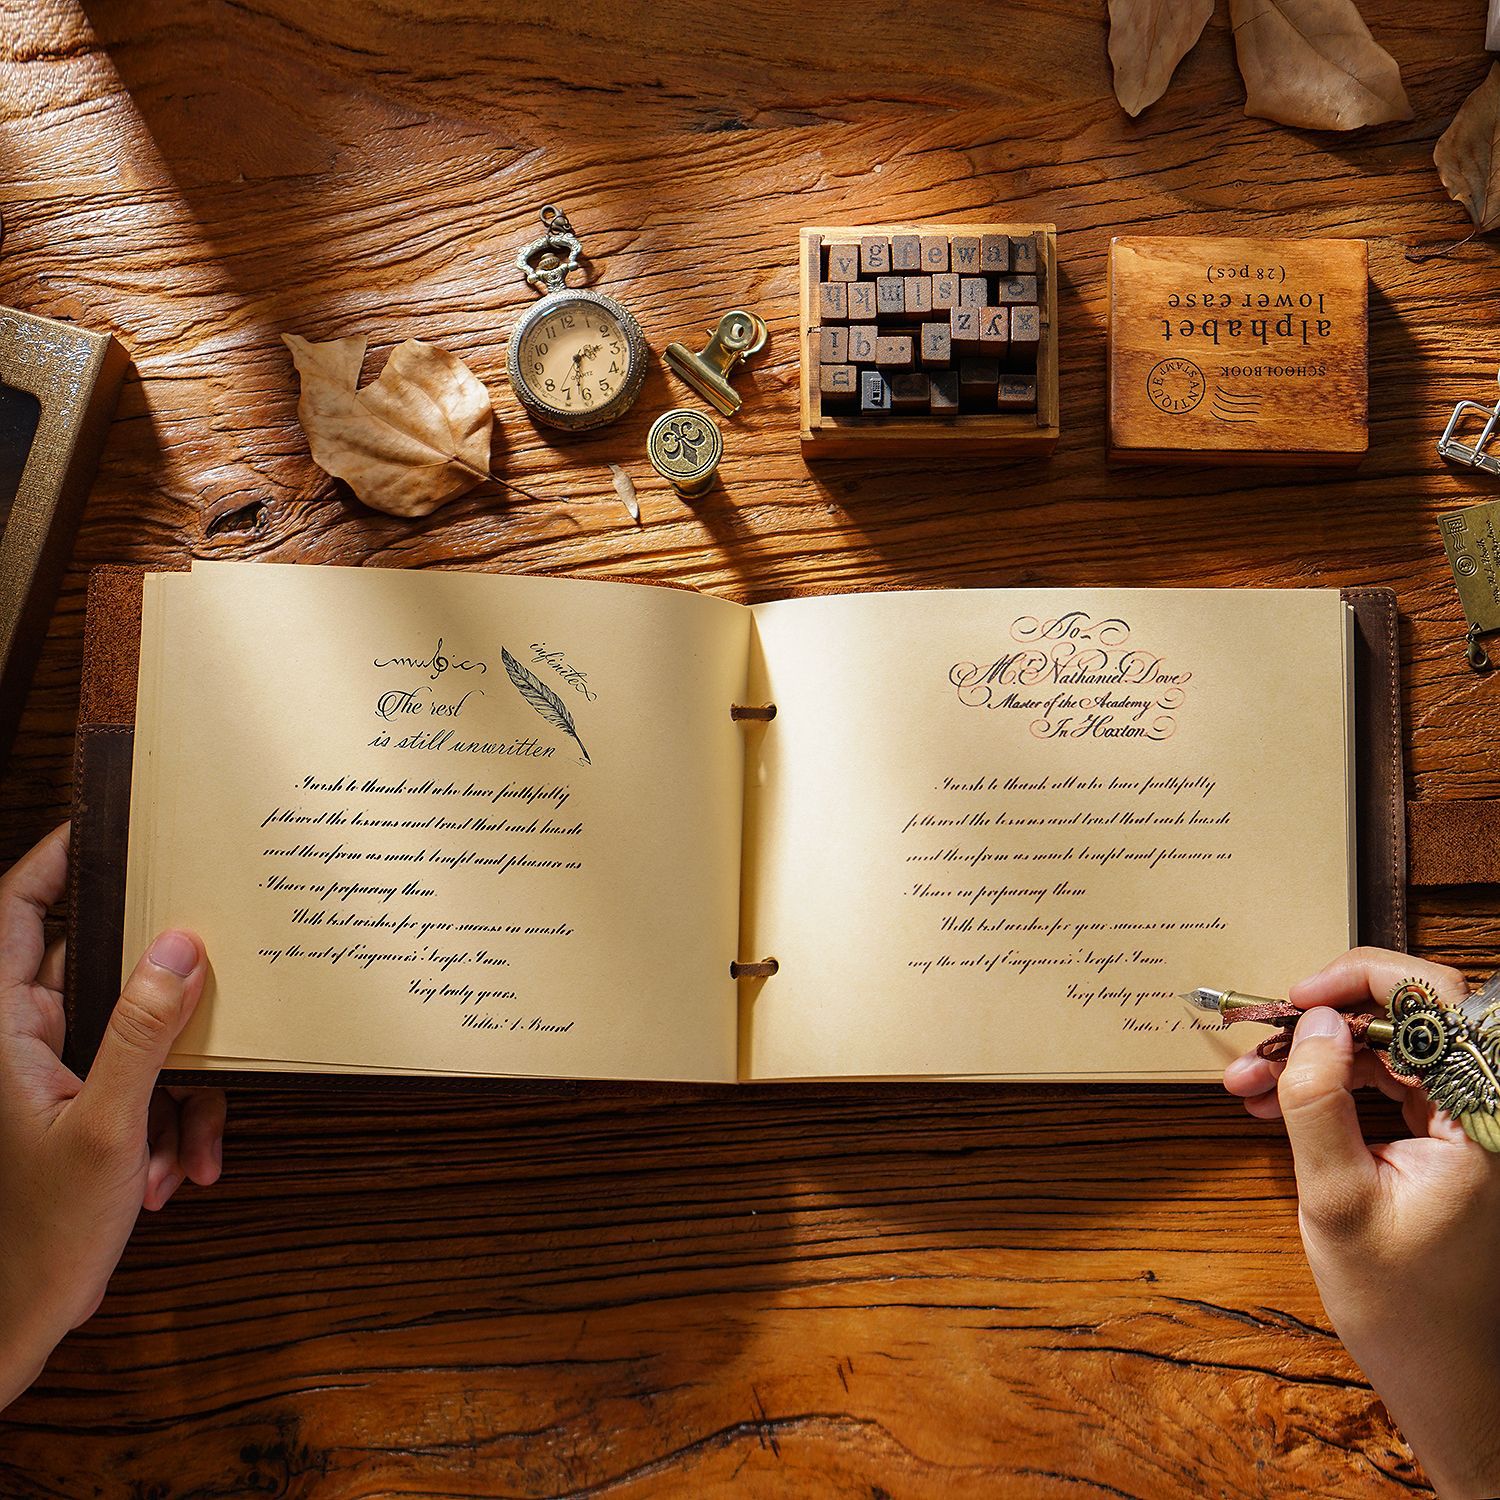 12
1
2
3
4
5
6
7
8
9
10
11
QUARTZ
v g f e w a n
q k m l s j o
z y x
! b .. r
n
(28 pcs)
lower case
alphabet
SCHOOLBOOK
ANTIQUE
STAMP
music
infinite
The rest
is still unwritten
I wish to thank all who have faithfully
followed the lessons and trust that each has de
rived therefrom as much benefit and pleasure as
I have in preparing them.
With best wishes for your success in master
ing the art of Engravers' Script, I am,
Very truly yours,
To
Mr. Nathaniel Dove
Master of the Academy
In Hoxton
I wish to thank all who have faithfully
followed the lessons and trust that each has de
rived therefrom as much benefit and pleasure as
I have in preparing them
With best wishes for your success in master
ing the art of Engravers' Script, I am,
Very truly yours